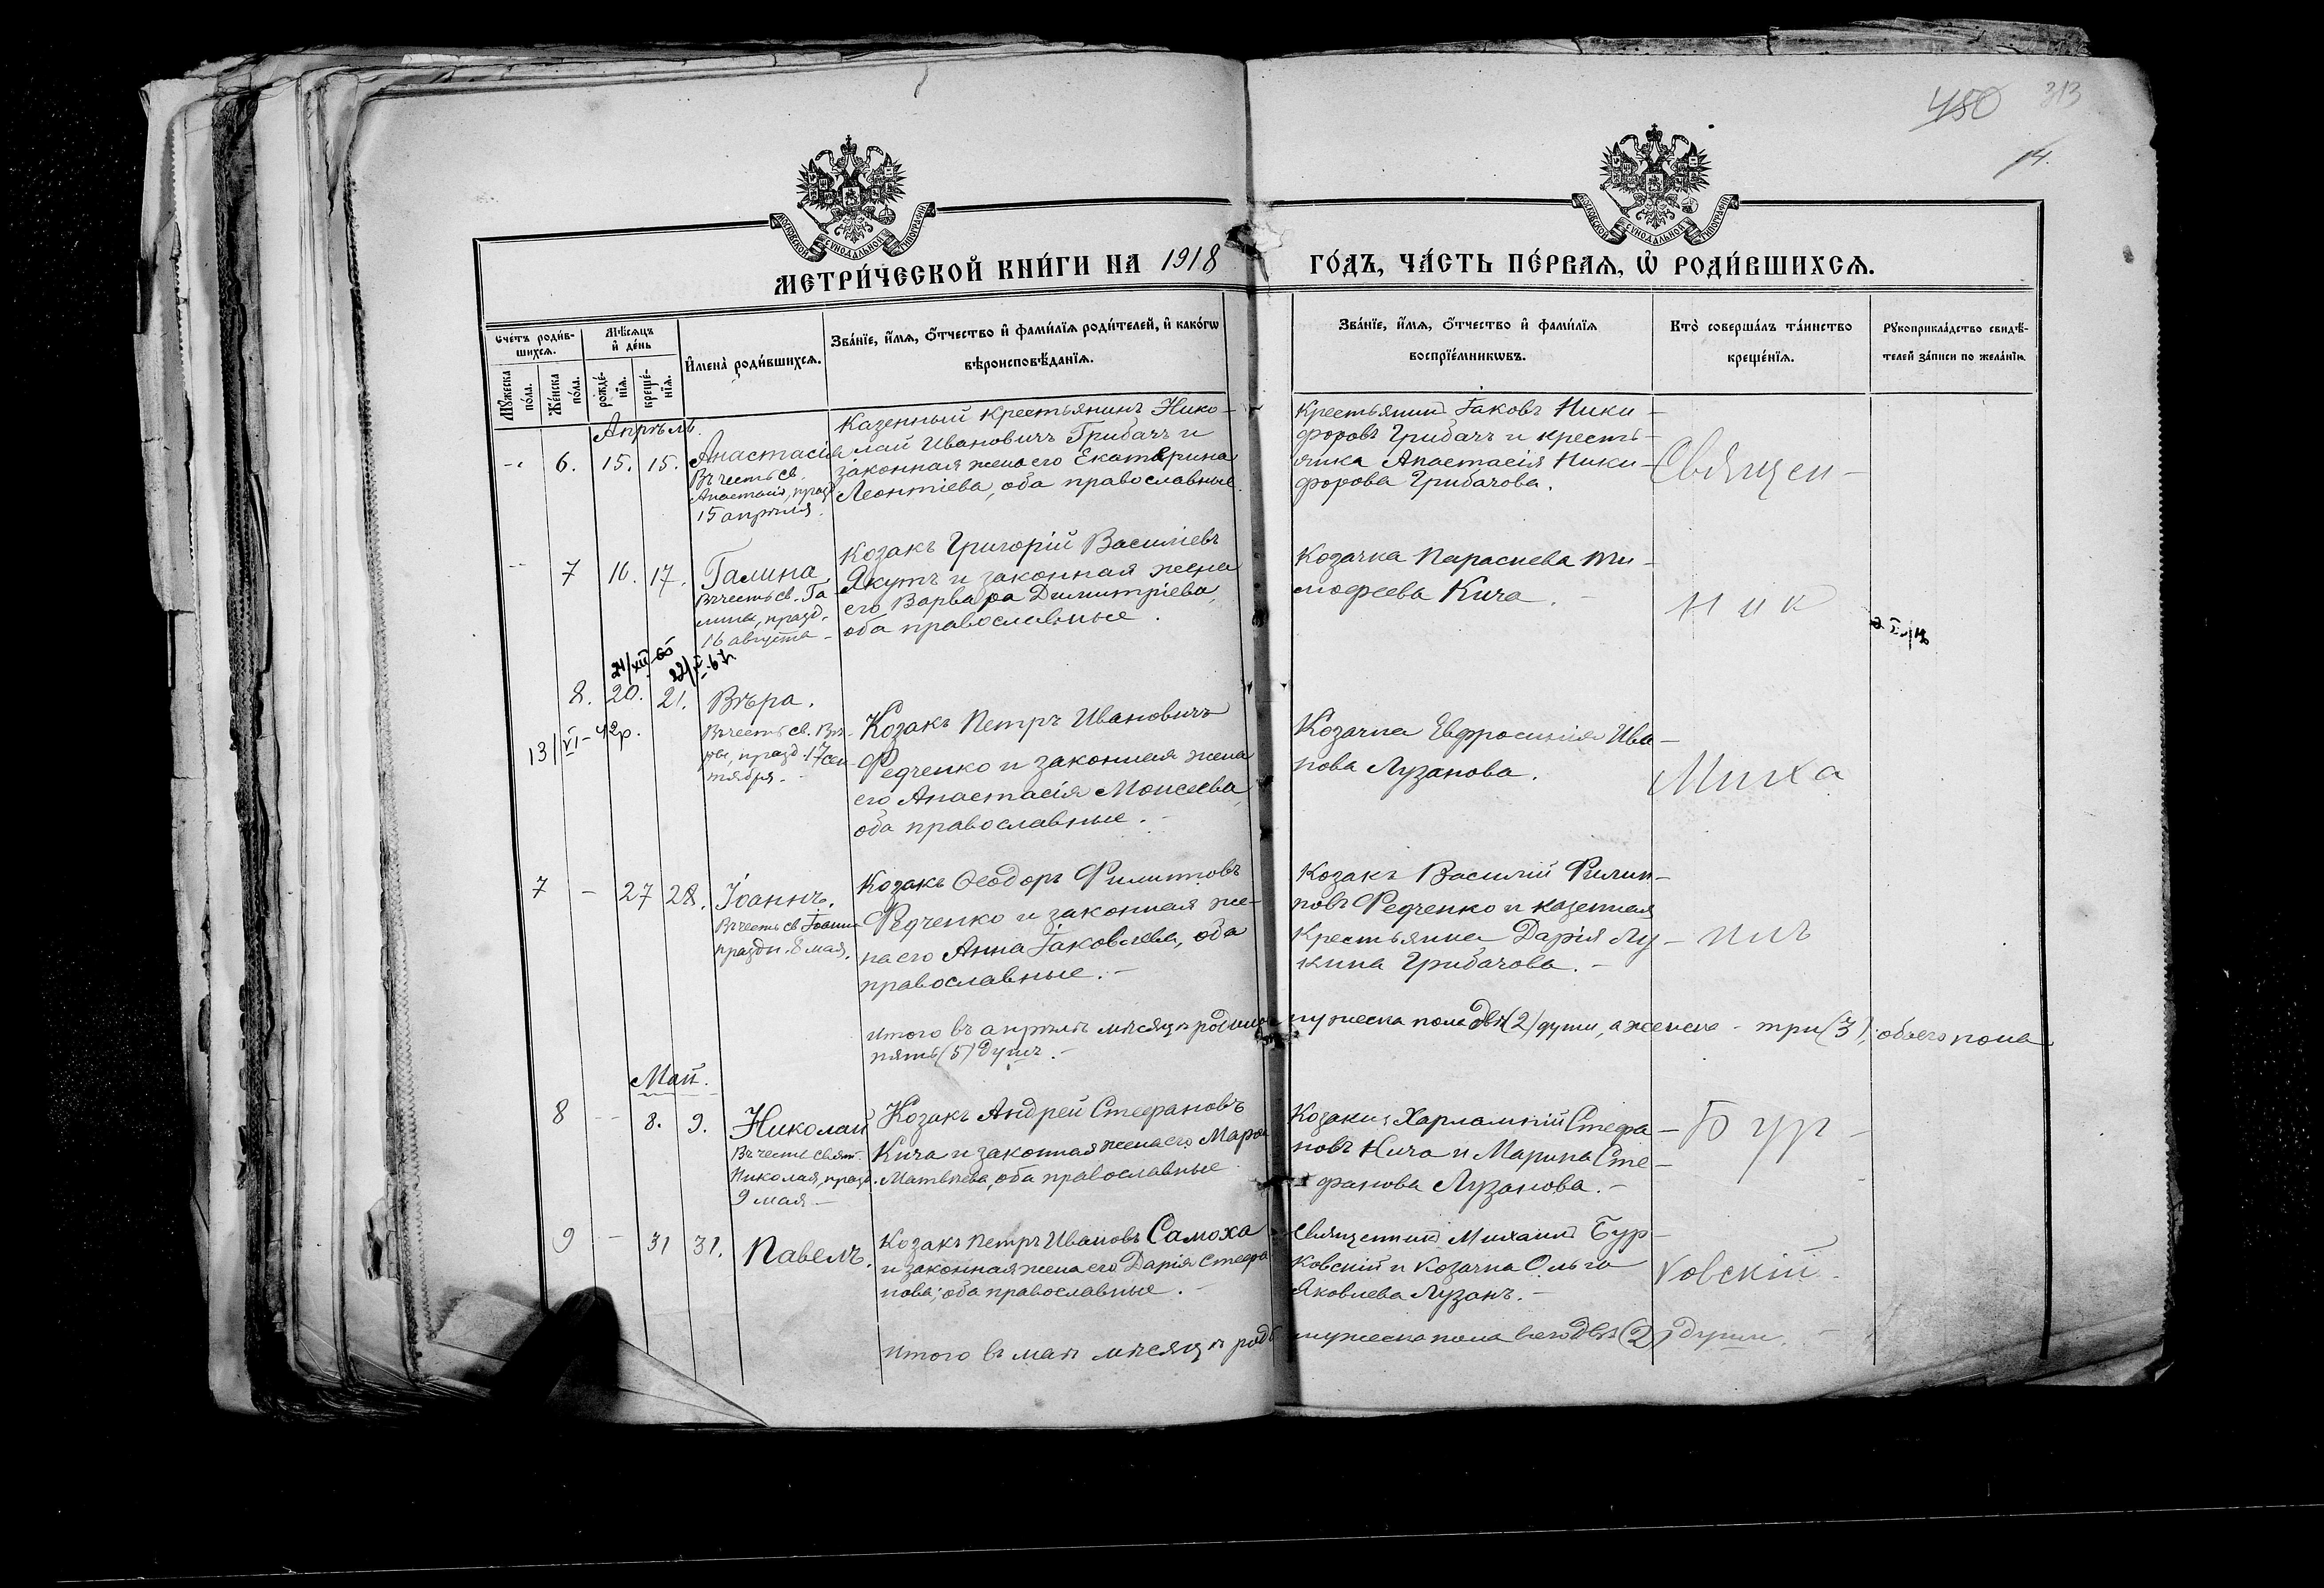 480 313
14.
МОСКОВСКОЙ СѴНОДАЛЬНОЙ ТИПОГРАФІИ
МОСКОВСКОЙ СѴНОДАЛЬНОЙ ТИПОГРАФІИ
МЕТРИ́ЧЕСКОЙ КНИ́ГИ НА 1918 ГО́ДЪ, ЧА́СТЬ ПЕ́РВАѦ, Ѽ РОДИ́ВШИХСѦ.
Сче́тъ роди́в-
шихсѧ.
Мꙋ́жеска по́ла.
Же́нска по́ла.
Мѣ́сѧцъ и҆ де́нь
рожде́-нїѧ.
креще́-нїѧ.
И҆мена̀ роди́вшихсѧ.
Зва́нїе, и҆́мѧ, ѻ҆́тчество и҆ фами́лїѧ роди́телей, и҆ како́гѡ
вѣроисповѣ́данїѧ.
Зва́нїе, и҆́мѧ, ѻ҆́тчество и҆ фами́лїѧ
воспрїе́мникѡвъ.
Кто̀ соверша́лъ та́инство
креще́нїѧ.
Рꙋкоприкла́дство свидѣ́-
телей за́писи по жела́нїю.
Апрѣль.
6. 15. 15. Анастасія
Въ честь св.
Анастасіи, празд.
15 апрѣля.
Казенный крестьянинъ Нико-
лай Ивановичъ Грибачъ и
законная жена его Екатерина
Леонтіева, оба православные.
Крестьянинъ Іаковъ Ники-
форовъ Грибачъ и кресть-
янка Анастасія Ники-
форова Грибачова.
Священ-
7 16. 17. Галина
Въ честь св. Га-
лины, празд.
16 августа -
Козакъ Григорій Василіевъ
Якутъ и законная жена
его Варвара Димитріева,
оба православные.
Козачка Параскева Ти-
мофеева Кича. -
ник
24/XII
8. 20. 21. Вѣра.
13/VI-42р.
Въ честь св. Вѣ-
ры, празд. 17 сен-
тября. -
Козакъ Петръ Ивановичъ
Федченко и законная жена
его Анастасія Моисеева,
оба православные. -
Козачка Евфросинія Ива-
нова Лузанова.
Миха
7 - 27 28. Іоаннъ.
Въ честь св. Іоанна
праздн. 8 мая.
Козакъ Ѳеодоръ Филипповъ
Федченко и законная же-
на его Анна Іаковлева, оба
православные. -
Козакъ Василій Филип-
повъ Федченко и казенная
крестьянка Дарія Лу-
кина Грибачова. -
илъ
Итого въ апрѣлѣ мѣсяцѣ родилось мужеска пола двѣ (2) души, а женска - три (3), обоего пола
пять (5) душъ. -
Май.
8 - 8. 9. Николай
Въ честь свят.
Николая, празд.
9 мая -
Козакъ Андрей Стефановъ
Кича и законная жена его Марѳа
Матвѣева, оба православные
Козаки: Харлампій Стефа-
новъ Кича и Марина Сте-
фанова Лузанова. -
Бур-
9 - 31 31. Павелъ.
Козакъ Петръ Ивановъ Самоха
и законная жена его Дарія Стефа
нова; оба православные. -
Священникъ Михаилъ Бур-
ковскій и козачка Ольга
Яковлева Лузанъ. -
ковскій.
Итого въ маѣ мѣсяцѣ род. мужеска пола всего двѣ (2) души. -